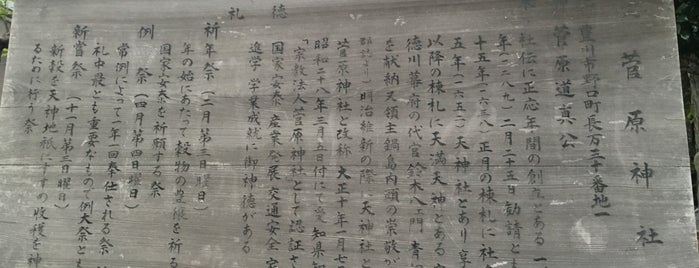 菅原神社
豊川市野口町長万三十番地一
菅原道真公
社伝に正応年間の創立とある 一
年(一二八九)二月二十五日勧請とも
十五年(一六三八)正月の棟札に社
五年(一六五二)天神社とあり享
以降の棟札に天満天神とある
徳川幕府の代官鈴木八右門
を献納又領主鍋島内頭の崇敬が
明治維新の際 天神社と
菅原神社と改称 大正十年一月七
昭和二十八年三月五日付にて愛知県知
「宗教法人菅原神社として認証さ
国家安泰 産業発展 交通安全 家
進学 学業成就に御神徳がある
徳
礼
祈年祭(二月第三日曜日)
年の始にあたって穀物の豊穣を祈る
国家安泰を祈願する祭
例祭(四月第四日曜日)
常例によって一年一回奉仕される祭
礼中最とも重要なもので例大祭とも
新嘗祭(十一月第三日曜日)
新穀を天神地祇にすすめ収穫を神
るために行う祭